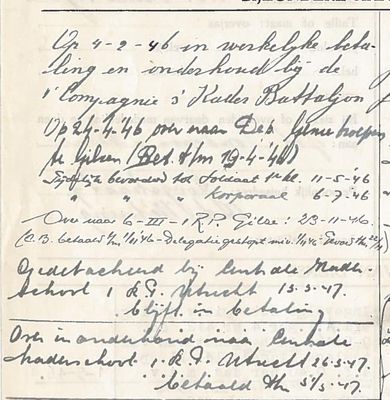 Op 4-2-46 in werkelijke beta-
ling en onderhoud bij de
1e Compagnie 3e Kader Battaljon
Op 24-4-46 over naar Dep. Genie troepen
te Gilzen (Bet. t/m 19-4-46)
Tijdelijk bevorderd tot Soldaat 1e kl. 11-5-46
" " " Korporaal 6-7-46
Over naar 6-III-1 R.P. Gilze: 23-11-46.
betaald t/m Delegatie gestopt m.i.v.
Gedetacheerd bij Centrale Kader-
school 1 R.G. Utrecht 13-3-47.
blijft in betaling
Over in onderhoud naar Centrale
Kaderschool 1 R.G. Utrecht 26-3-47.
betaald t/m 5/3-47.